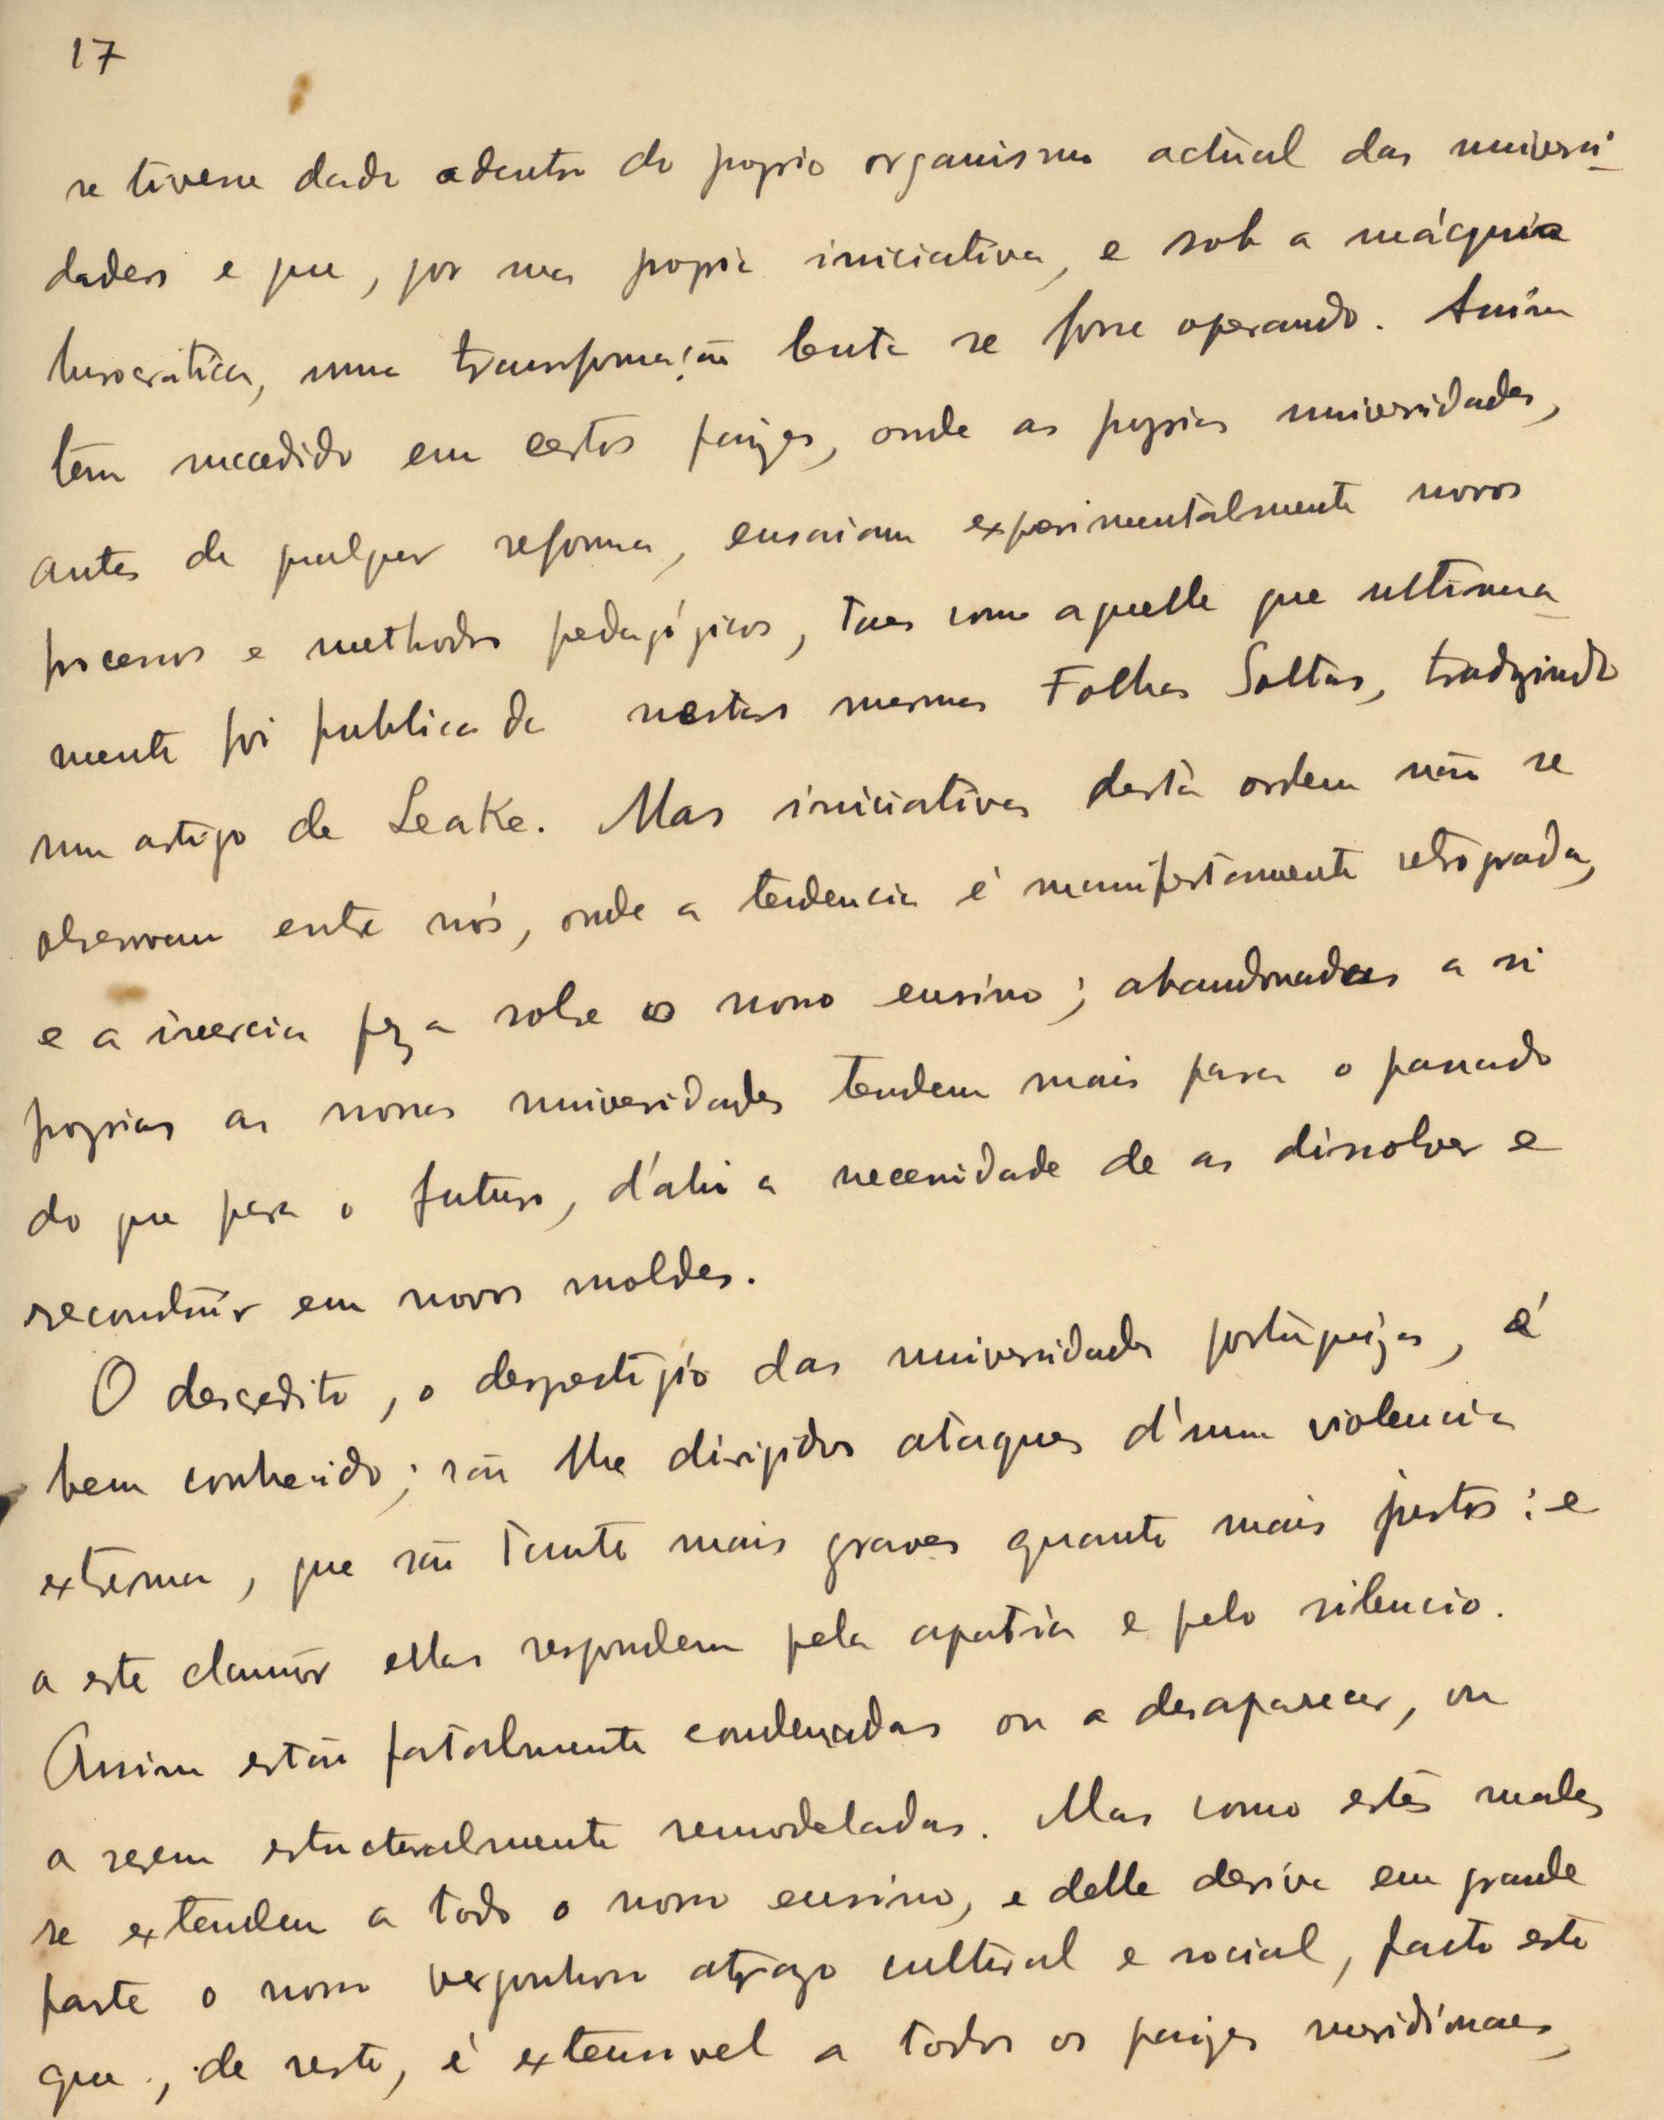 17
se tivesse dado adentro do proprio organismo actual das universi-
dades e que, por sua propria iniciativa, e sob a máquina
burocratica, uma transformação lenta se fosse operando. Assim
tem succedido em certos paizes, onde as proprias universidades,
antes de qualquer reforma, ensaiam experimentalmente novos
processos e methodos pedagógicos, taes como aquelle que ultima-
mente foi publicado nestas mesmas Folhas Soltas, traduzindo
um artigo de Leake. Mas iniciativas desta ordem não se
observam entre nós, onde a tendencia é manifestamente retrograda,
e a inercia peza sobre o nosso ensino; abandonadas a si
proprias as nossas universidades tendem mais para o passado
do que para o futuro, d'ahi a necessidade de as dissolver e
reconstruir em novos moldes.
O descredito, o desprestigio das universidades portuguezas, é
bem conhecido; são lhe dirigidos ataques d'uma violencia
extrema, que são tanto mais graves quanto mais justos: e
a este clamôr ellas respondem pela apatia e pelo silencio.
Assim estão fatalmente condenadas ou a desaparecer, ou
a serem estructuralmente remodeladas. Mas como estes males
se extendem a todo o nosso ensino, e delle deriva em grande
parte o nosso vergonhoso atrazo cultural e social, facto este
que, de resto, é extensivel a todos os paizes meridionaes,